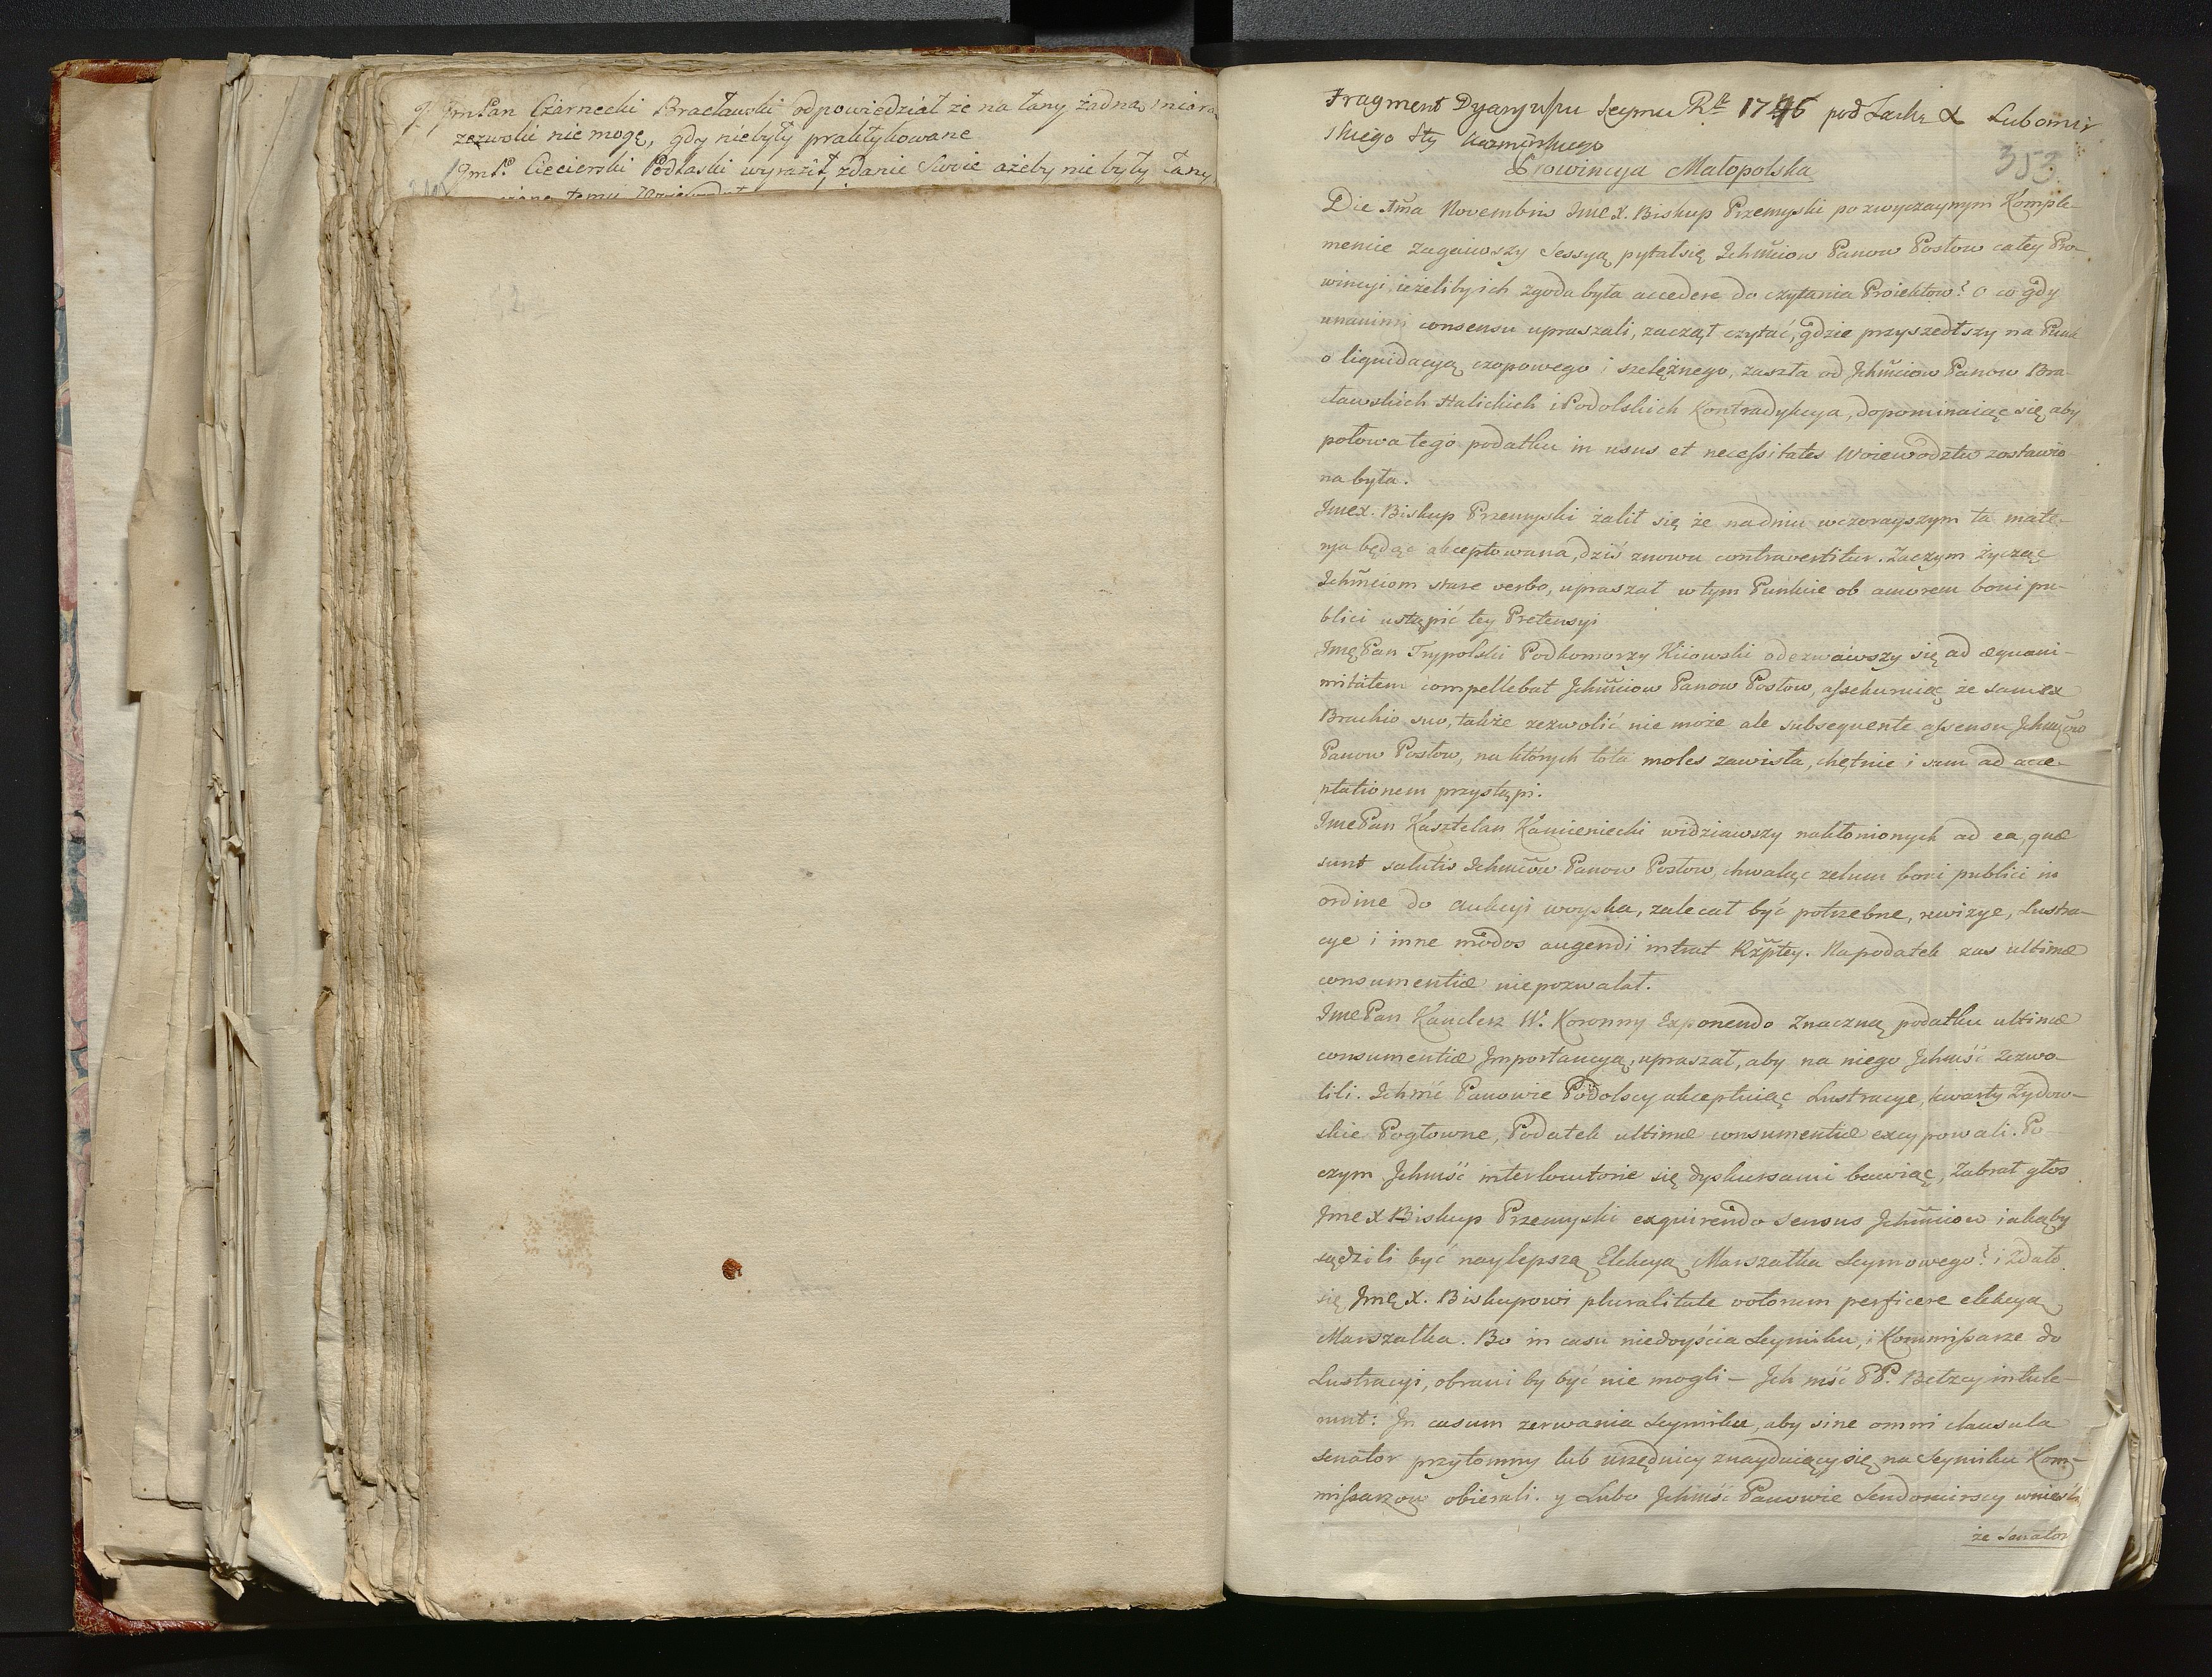 Jm Pan Czarnecki Bracławski odpowiedział że na łany żadną
zezwolić nie mogę, gdy niebyły praktykowane
Jmć P. Ciecierski Podlaski wyraził, zdanie swoie ażeby nie były łany
Fragment Dyaryuszu Seymu R. 1746 pod Laską X Lubomir
skiego Sty Kazmirskiego
353.
Prowincya Małopolska
Die 7ma Novembris Jmć X. Biskup Przemyski po zwyczaynym Komple-
mencie zagaiwszy Sessyą, pytał się Jchmciow Panow Posłow całey Pro-
wincyi, ieżeliby ich zgoda była accedere do czytania Proiektow? O co gdy
unanimi consensu upraszali, zaczął czytać, gdzie przyszedłszy na Punk
o liquidacyą czopowego i szelężnego, zaszła od Jchmciow Panow Bra-
cławskich Halickich i Podolskich Kontradykcya, dopominaiąc się aby
połowa tego podatku in usus et necessitates Woiewodztw zostawio-
na była.
Jmć X. Biskup Przemyski żalił się że na dniu wczorayszym ta mate-
rya będąc akceptowana, dziś znowu controvertitur. Zaczym życząc
Jchmciom stare verbo, upraszał w tym Punkcie ob amorem boni pu-
blici ustąpić tey Pretensyi
Jmć Pan Trypolski Podkomorzy Kiiowski odezwawszy się ad æquani-
mitatem compellebat Jchmciow Panow Posłow, assekuruiąc że sam ex
Brachio suo, także zezwolić nie może ale subsequente assensu Jchmciow
Panow Posłow, na ktorych tota moles zawisła, chętnie i sam ad acce-
ptationem przystąpi.
Jmć Pan Kasztelan Kamieniecki widziawszy nakłonionych ad ea, quæ
sunt salutis Jchmciow Panow Posłow, chwaląc zelum boni publici in
ordine do aukcyi woyska, zalecał być potrzebne, rewizye, Lustra-
cye i inne modos augendi intrat Rzptey. Na podatek zas ultimæ
consumentiæ niepozwalał.
Jmć Pan Kanclerz W. Koronny Exponendo Znaczną podatku ultimæ
consumentiæ Jmportancyą, upraszał, aby na niego Jchmść zezwo-
lili. Jchmć Panowie Podolscy akceptuiąc Lustracye, kwarty Zydow-
skie Pogłowne, Podatek ultimæ consumentiæ excypowali. Po
czym Jchmść interlocutorie się dyskursami bawiąc, Zabrał głos
Jmć X Biskup Przemyski exquirendo sensus Jchmciow iakąby
sądzili być naylepszą Elekcyą Marszałka Seymowego? i Zdało
się, Jmć X. Biskupowi pluralitate votorum perficere elekcyą
Marszałka. Bo in casu niedoyścia Seymiku, i Kommissarze do
Lustracyi, obrani by być nie mogli — Jch mść PP. Bełzcy intule-
runt: Jn casum zerwania Seymiku, aby sine omni clausula
Senator przytomny lub urzędnicy znayduiący się na Seymiku Kom-
missarzow obierali. y Lubo Jchmść Panowie Sendomirscy wnieśli
że Senator